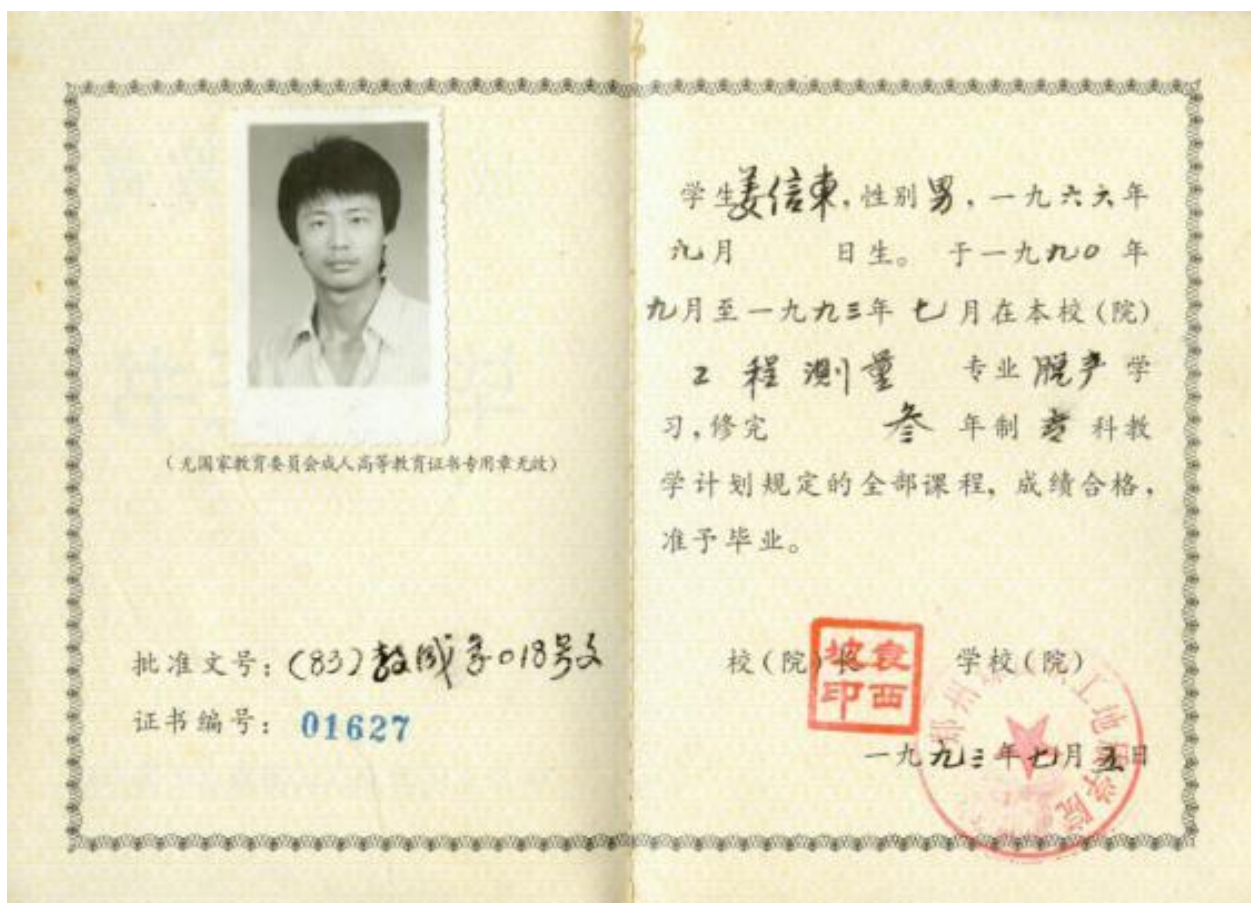 (无国家教育委员会成人高等教育证书专用章无效)
批准文号:(83)教成字018号文
证书编号: 01627
学生姜信東,性别男,一九六六年
九月 日生。于一九九〇年
九月至一九九三年七月在本校(院)
工程测量 专业脱产学
习,修完 叁年制专科教
学计划规定的全部课程,成绩合格,
准予毕业。
校(院)长 学校(院)
袁西坡印
一九九三年七月五日
郑州 工地 学院